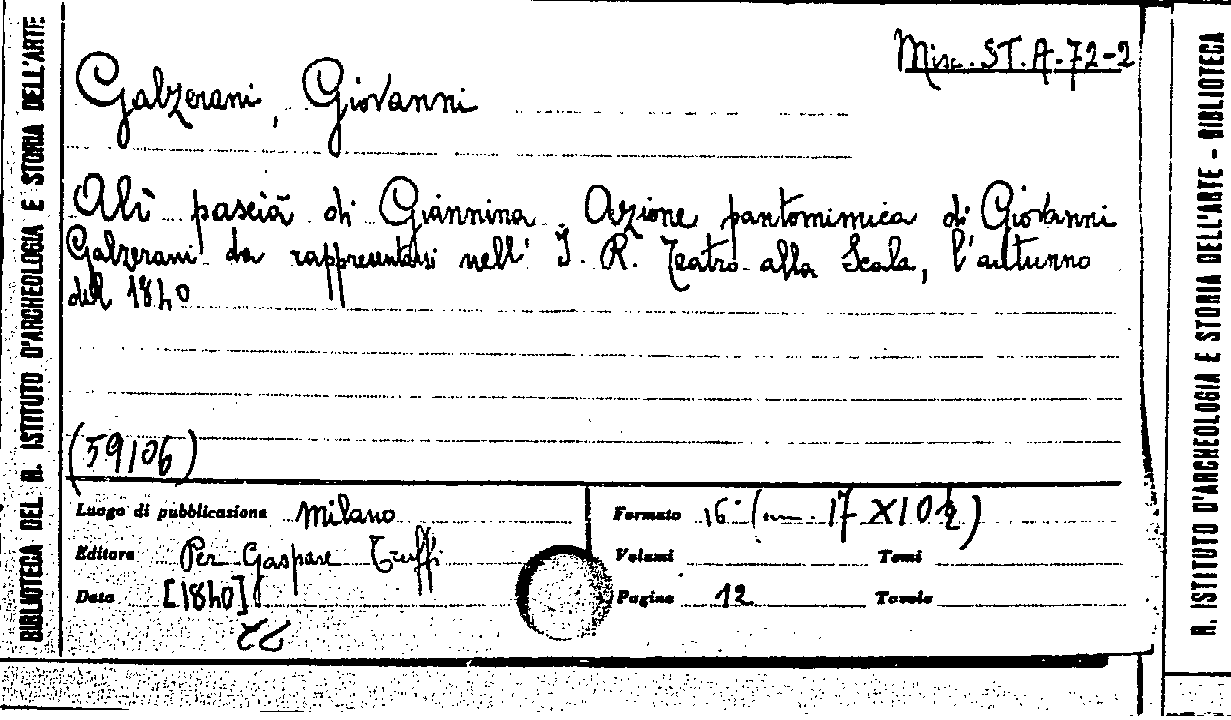 BIBLIOTECA DEL R. ISTITUTO D'ARCHEOLOGIA E STORIA DELL'ARTE
Misc. ST. A. 72-2
Galzerani, Giovanni
Alì pascià di Giannina. Azione pantomimica di Giovanni
Galzerani da rappresentarsi nell' I. R. Teatro alla Scala, l'autunno
del 1840
(59106)
Luogo di pubblicazione Milano
Editore Per Gaspare Truffi
Data [1840]
Formato 16° (cm. 17 X 10½)
Volumi Tomi
Pagine 12 Tavole
R. ISTITUTO D'ARCHEOLOGIA E STORIA DELL'ARTE - BIBLIOTECA